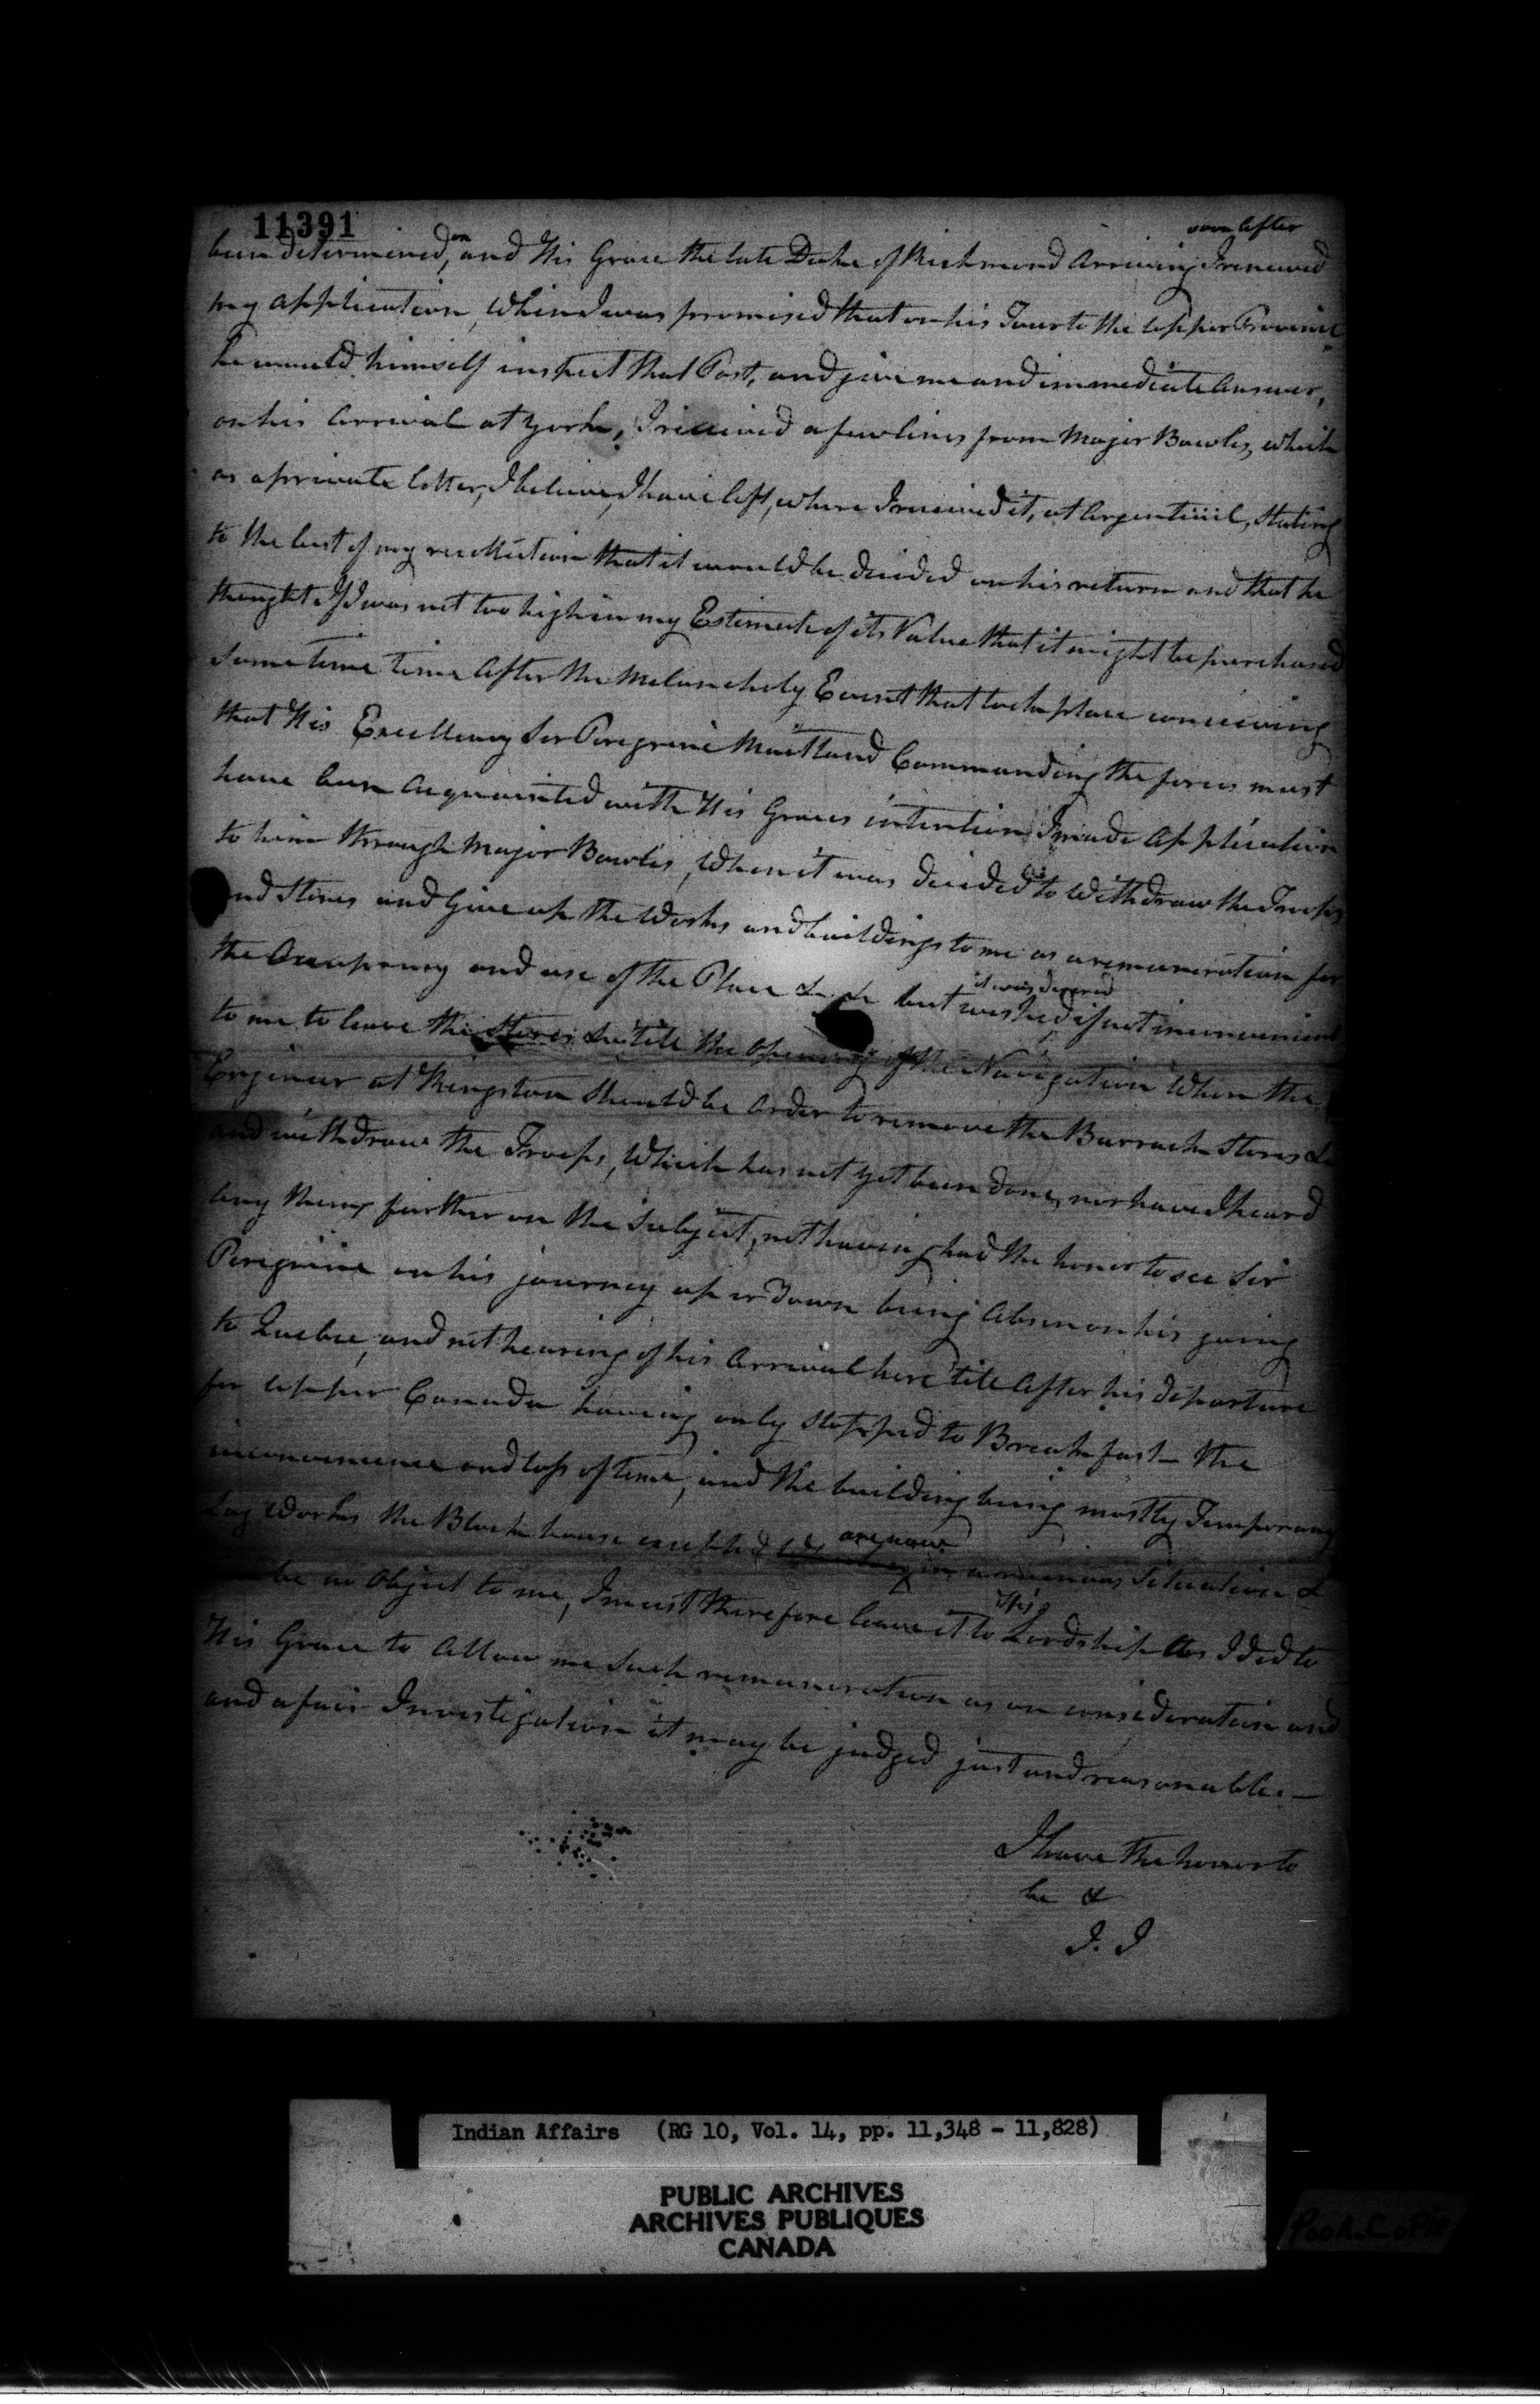 11391
soon After
been determined, on and His Grace the late Duke of Richmond Arriving I renewed
my Application, When I was promised that on his Tour to the Upper Province
he would himself inspect that Post, and give me and immediate Answer,
on his Arrival at York, I received a few lines from Major Bowles, which
as a private letter, I believe, I have left, where I received it, at Argenteuil, Stating
to the best of my recollection that it would be decided on his return and that he
thought If I was not too high in my Estimate of its Value that it might be purchased
some time time After the Melancholy Event that took place conceiving
that His Excellency Sir Peregrine Maitland Commanding the forces must
have been Acquainted with His Graces intention I made Application
to him through Major Bowles, When it was decided to Withdraw the Troops
and Stores and Give up the Works and buildings to me as a remuneration for
the Occupancy and use of the Place &c &c but
it was desired
wished if not inconvenient
to me to leave the Stores until the opening of the Navigation When the
Engineer at Kingston Should be Order to remove the Barrack Stores &c
and withdraw the Troops, Which has not yet been done, nor have I heard
any thing further on the Subject, not having had the honor to see Sir
Peregrine on his journey up or Down being Absen on his going
to Quebec, and not hearing of his Arrival here 'till After his departure
for Upper Canada having only Stopped to Breakfast – the
inconvenience and loss of time, and the building being mostly Temporary
Log Works the Block house excepted
are now
in a ruinous Situation &
be no Object to me, I must therefore leave it to His Lordship As I did to
His Grace to Allow me Such remuneration as on consideration and
and a fair Investigation it may be judged just and reasonable. –
I have the honor to
be &
J. J
Indian Affairs (RG 10, Vol. 14, pp. 11,348 - 11,828)
PUBLIC ARCHIVES
ARCHIVES PUBLIQUES
CANADA
Poor Copie